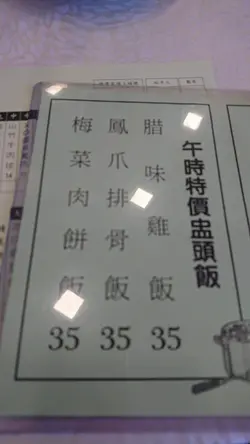 午時特價盅頭飯
臘味雞飯
35
鳳爪排骨飯
35
梅菜肉餅飯
35
山竹牛肉球